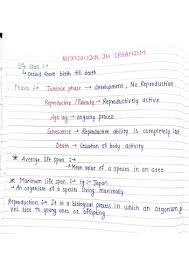 REPRODUCTION IN ORGANISM
Life span :→
↳ period from birth till death
Phases :→ Juvenile phase → development, No Reproduction
Reproductive / Maturity → Reproductively active
Ageing → ongoing process
Senescence → Reproductive ability is completely lost
Death → Cessation of body activity
* Average life span :→
→ Mean value of a species in an area
* Maximum life span :→ eg :- Japan
→ An organism of a species living maximally.
Reproduction :→ It is a biological process in which an organism gives rise to young ones or offspring.